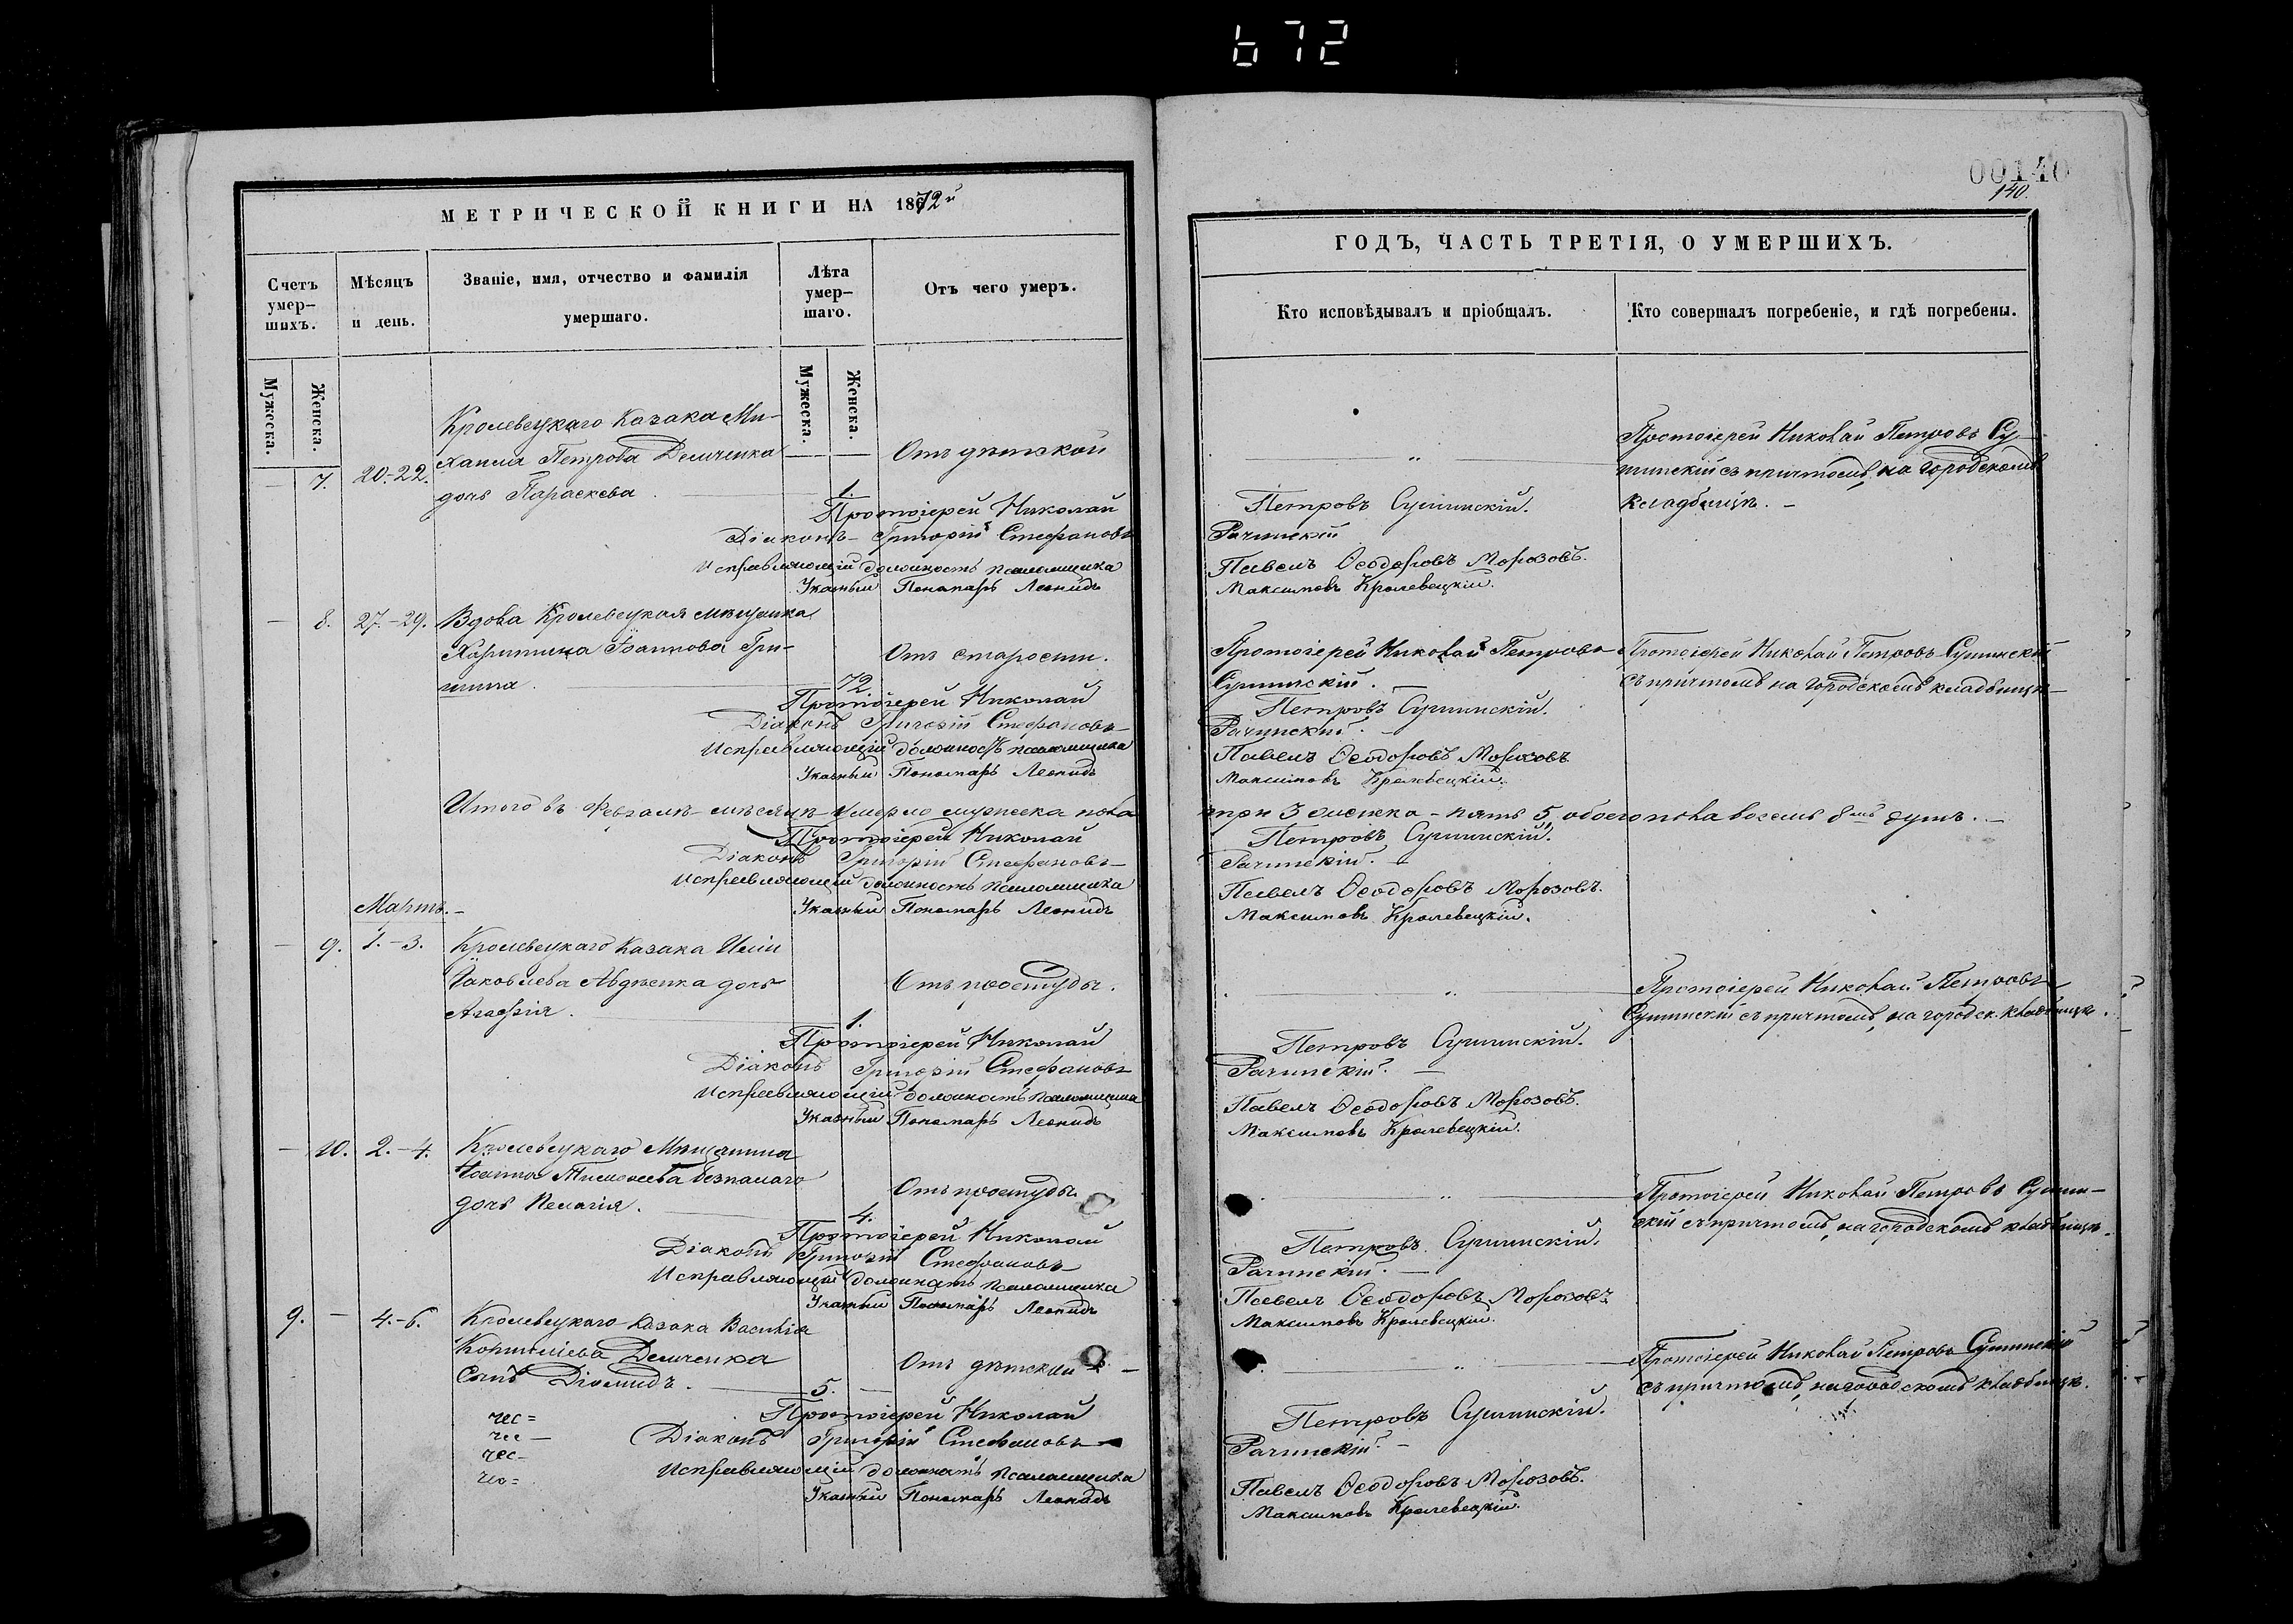 672
МЕТРИЧЕСКОЙ КНИГИ НА 1872й
Счетъ умер-шихъ.
Мѣсяцъ и день.
Званіе, имя, отчество и фамилія умершаго.
Лѣта умер-шаго.
Отъ чего умеръ.
Мужеска.
Женска.
Мужеска.
Женска.
Кролевецкаго Казака Ми-
— 7. 20.-22. хаила Петрова Демченка Отъ дѣтской
дочь Параскева. 1.
Протоіерей Николай
Діаконъ Григорій Стефановъ
Исправляющій должность псаломщика
Указный Пономарь Леонидъ
— 8. 27.-29. Вдова Кролевецкая мѣщанка
Харитина Іоаннова Гри- Отъ старости.
шина. 72.
Протоіерей Николай
Діаконъ Григорій Стефановъ
Исправляющій должность псаломщика
Указный Пономарь Леонидъ
Итого въ Февралѣ мѣсяцѣ умерло мужеска пола
Протоіерей Николай
Діаконъ Григорій Стефановъ
Исправляющій должность псаломщика
Мартъ. Указный Пономарь Леонидъ
— 9. 1.-3. Кролевецкаго Казака Иліи
Іаковлева Авдѣенка дочь Отъ простуды.
Агафія. 1.
Протоіерей Николай
Діаконъ Григорій Стефановъ
Исправляющій должность псаломщика
Указный Пономарь Леонидъ
— 10. 2.-4. Кролевецкаго Мѣщанина
Іоанна Тимофеева Безпалаго Отъ простуды
дочь Пелагія. 4.
Протоіерей Николай
Діаконъ Григорій Стефановъ
Исправляющій должность псаломщика
Указный Пономарь Леонидъ
9. — 4.-6. Кролевецкаго Казака Василія
Корниліева Демченка Отъ дѣтской
Сынъ Діомидъ. 5.
Протоіерей Николай
Діаконъ Григорій Стефановъ
Исправляющій должность псаломщика
Указный Пономарь Леонидъ
00140
140.
ГОДЪ, ЧАСТЬ ТРЕТІЯ, О УМЕРШИХЪ.
Кто исповѣдывалъ и пріобщалъ.
Кто совершалъ погребеніе, и гдѣ погребены.
Протоіерей Николай Петровъ Су-
шинскій съ причтомъ, на городскомъ
кладбищѣ.
Петровъ Сушинскій.
Рачинскій
Павелъ Ѳеодоровъ Морозовъ.
Максимовъ Кролевецкій.
Протоіерей Николай Петровъ
Сушинскій.
Протоіерей Николай Петровъ Сушинскій
съ причтомъ на городскомъ кладбищѣ
Петровъ Сушинскій.
Рачинскій.
Павелъ Ѳеодоровъ Морозовъ
Максимовъ Кролевецкій.
три 3 женска - пять 5, обоего пола восемь 8мь душъ.
Петровъ Сушинскій.
Рачинскій.
Павелъ Ѳеодоровъ Морозовъ.
Максимовъ Кролевецкій.
Протоіерей Николай Петровъ
Сушинскій съ причтомъ, на городск. кладбищѣ.
Петровъ Сушинскій.
Рачинскій.
Павелъ Ѳеодоровъ Морозовъ.
Максимовъ Кролевецкій.
Протоіерей Николай Петровъ Сушин-
скій съ причтомъ, на городскомъ кладбищѣ.
Петровъ Сушинскій.
Рачинскій.
Павелъ Ѳеодоровъ Морозовъ
Максимовъ Кролевецкій.
Протоіерей Николай Петровъ Сушинскій
съ причтомъ, на городскомъ кладбищѣ.
Петровъ Сушинскій.
Рачинскій.
Павелъ Ѳеодоровъ Морозовъ.
Максимовъ Кролевецкій.